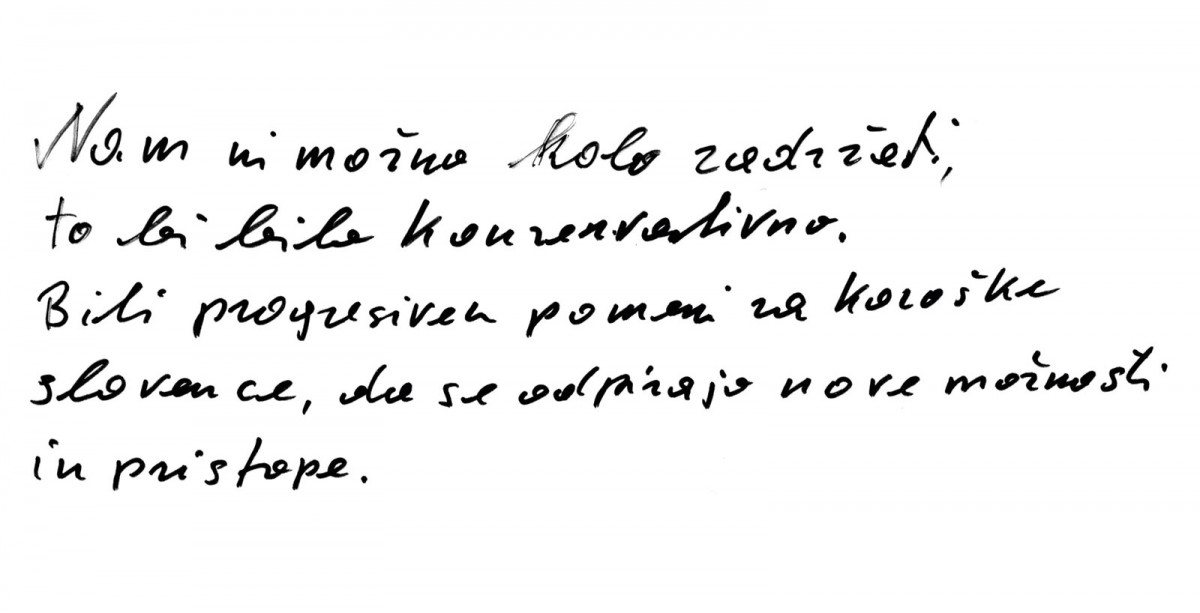 Nam ni možno kolo zadržati,
to bi bilo konzervativno.
Biti progresiven pomeni za koroške
slovence, da se odpirajo nove možnosti
in pristope.